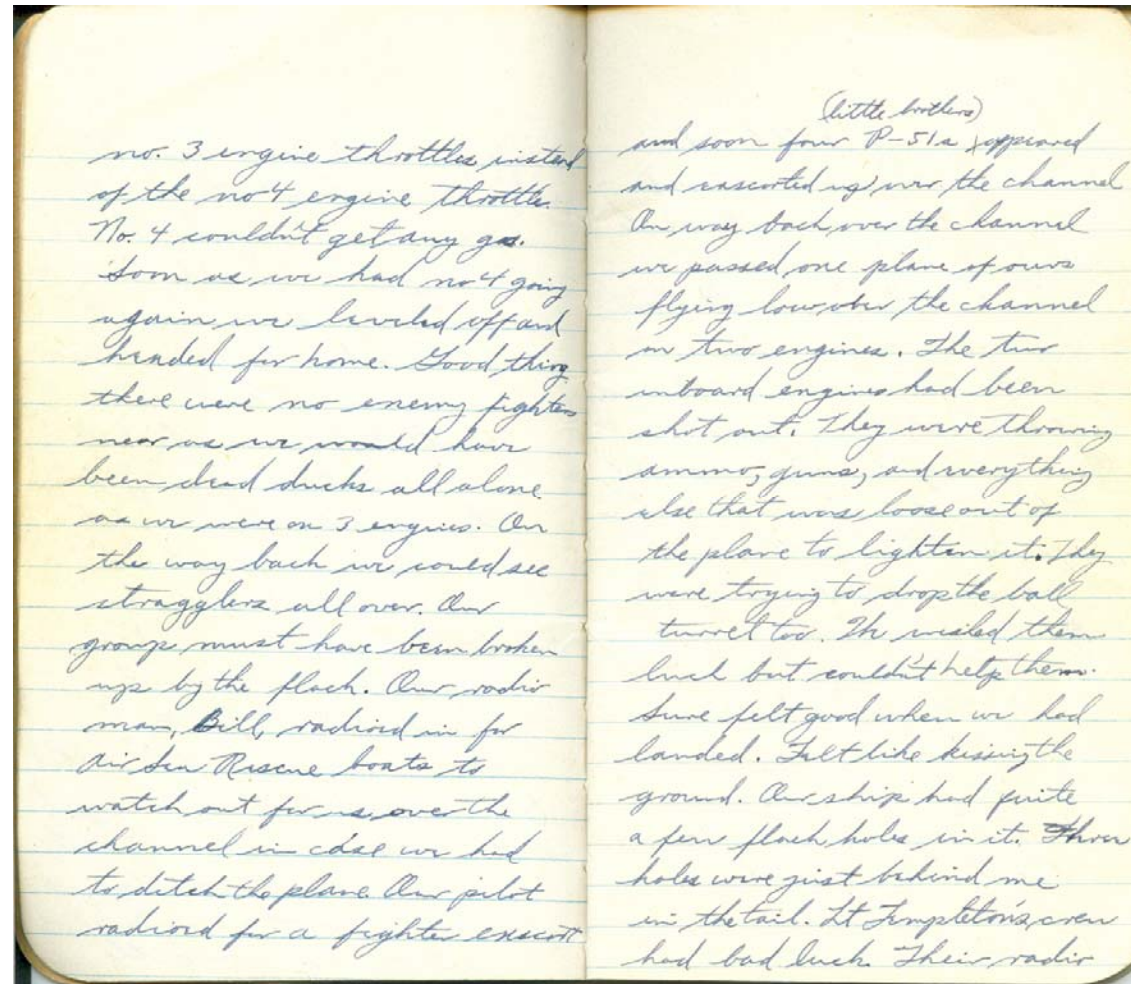 no. 3 engine throttles instead
of the no 4 engine throttle.
No. 4 couldn't get any gas.
Soon as we had no 4 going
again we leveled off and
headed for home. Good thing
there were no enemy fighters
near as we would have
been dead ducks all alone
as we were on 3 engines. On
the way back we could see
stragglers all over. Our
group must have been broken
up by the flack. Our radio
man, Bill, radioed in for
Air Sea Rescue boats to
watch out for us over the
channel in case we had
to ditch the plane. Our pilot
radioed for a fighter escort
(little brothers)
and soon four P-51s appeared
and escorted us over the channel
On way back over the channel
we passed one plane of ours
flying low over the channel
on two engines. The two
inboard engines had been
shot out. They were throwing
ammo, guns, and everything
else that was loose out of
the plane to lighten it. They
were trying to drop the ball
turret too. We wished them
luck but couldn't help them.
Sure felt good when we had
landed. Felt like kissing the
ground. Our ship had quite
a few flack holes in it. Three
holes were just behind me
in the tail. Lt Templeton's crew
had bad luck. Their radio